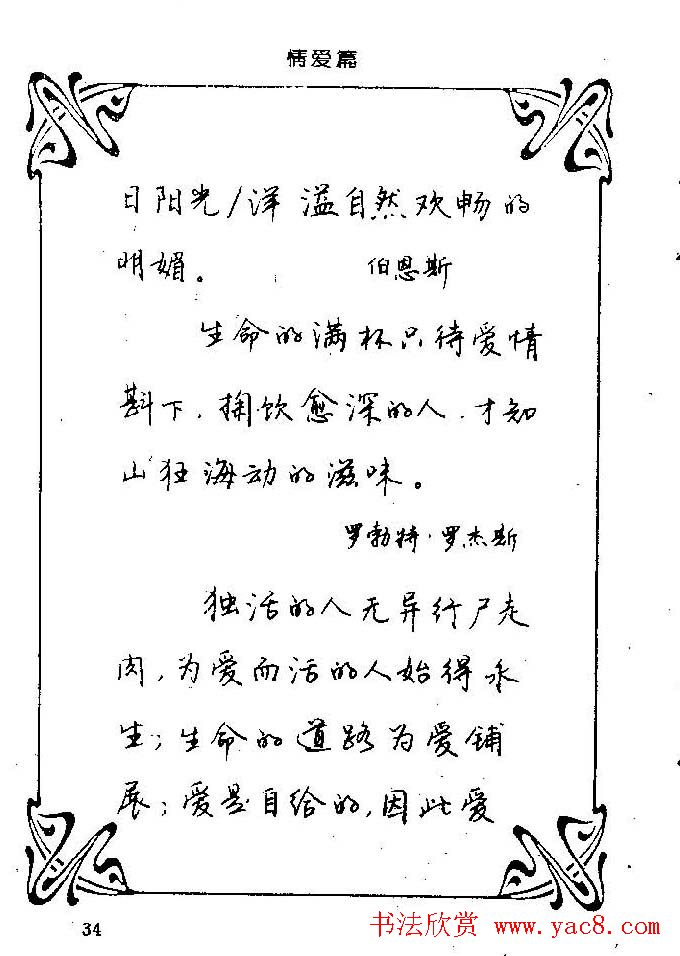 情爱篇
日阳光/洋溢自然欢畅的
明媚。 伯恩斯
生命的满杯只待爱情
斟下，掬饮愈深的人，才知
山狂海动的滋味。
罗勃特·罗杰斯
独活的人无异行尸走
肉，为爱而活的人始得永
生；生命的道路为爱铺
展；爱是自给的，因此爱
34
书法欣赏 www.yac8.com